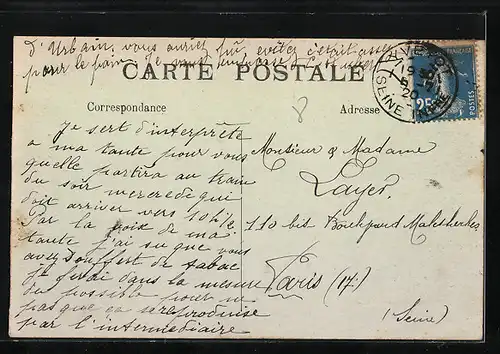 d'Urbain, vous auriez pu, evitez c'etait assez
pour le faire. Je vous embrasse
CARTE POSTALE
Correspondance
Adresse
8
YVETOT
SEINE INFRE
20
25c
POSTES
Je sert d'interprête
a ma tante pour vous
quelle partira au train
du soir mercredi qui
doit arriver vers 10h½
Par la voix de ma
tante j'ai su que vous
avez souffert de tabac
Je ferai dans la mesure
du possible pour ne
pas que ça se reproduise
par l'intermédiaire
Monsieur & Madame
Layer
110 bis Boulevard Malesherbes
Paris (17)
(Seine)